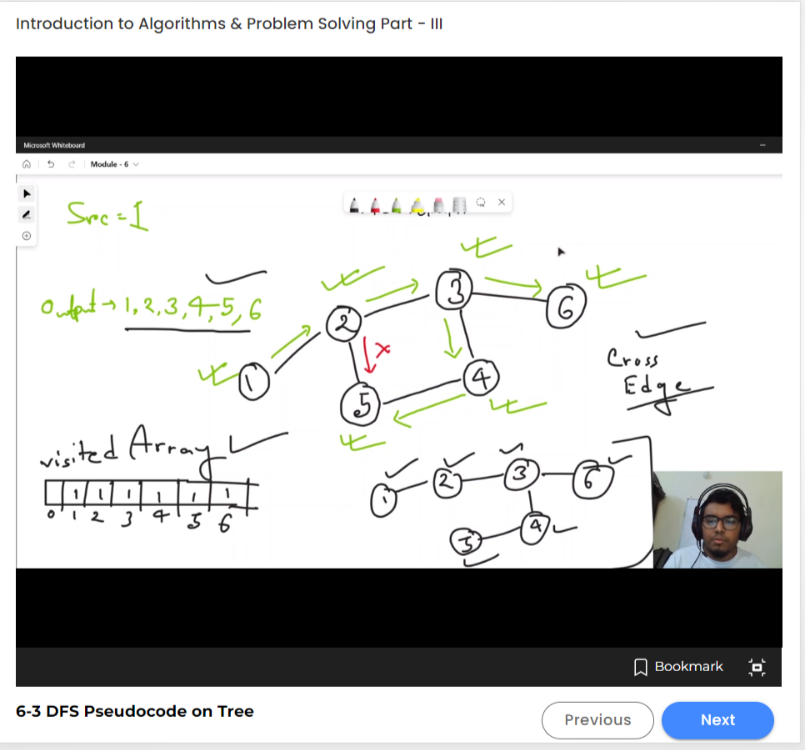 Introduction to Algorithms & Problem Solving Part - III
Microsoft Whiteboard
Module - 6
Src = 1
Output → 1, 2, 3, 4, 5, 6
1
2
3
6
5
4
Cross
Edge
visited Array
1 1 1 1 1 1
0 1 2 3 4 5 6
1 2 3 6
5 4
Bookmark
6-3 DFS Pseudocode on Tree
Previous
Next